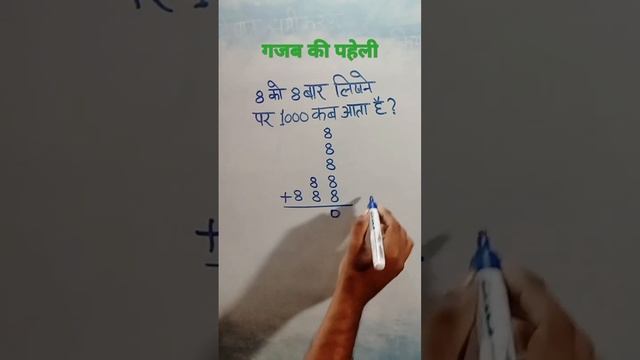 गजब की पहेली
8 को 8 बार लिखने
पर 1000 कब आता है?
8
8
8
8 8
+ 8 8 8
0